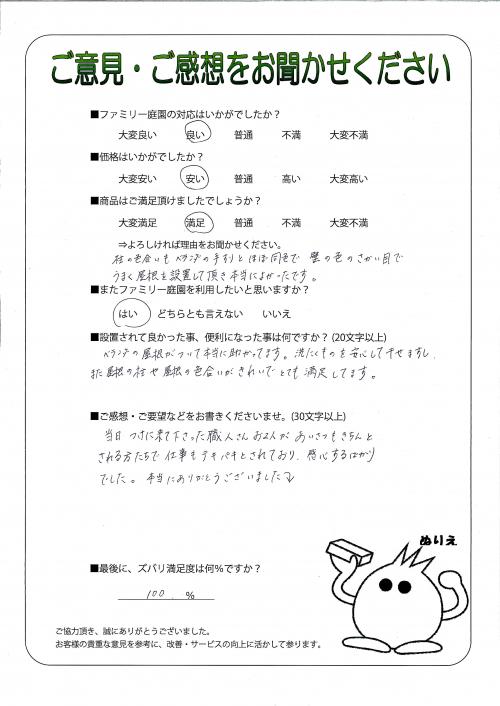 ご意見・ご感想をお聞かせください
■ファミリー庭園の対応はいかがでしたか？
大変良い 良い 普通 不満 大変不満
■価格はいかがでしたか？
大変安い 安い 普通 高い 大変高い
■商品はご満足頂けましたでしょうか？
大変満足 満足 普通 不満 大変不満
⇒よろしければ理由をお聞かせください。
柱の色合いもベランダの手すりとほぼ同色で 壁の色のさかい目で
うまく屋根を設置して頂き本当によかったです。
■またファミリー庭園を利用したいと思いますか？
はい どちらとも言えない いいえ
■設置されて良かった事、便利になった事は何ですか？(20文字以上)
ベランダの屋根がついて本当に助かってます。洗たくものを安心して干せますし、
また屋根の柱や屋根の色合いがきれいでとても満足してます。
■ご感想・ご要望などをお書きくださいませ。(30文字以上)
当日 つけに来て下さった職人さんお2人があいさつもきちんと
される方たちで仕事もテキパキとされており、感心するばかり
でした。本当にありがとうございました
ぬりえ
■最後に、ズバリ満足度は何％ですか？
100 ％
ご協力頂き、誠にありがとうございました。
お客様の貴重な意見を参考に、改善・サービスの向上に活かして参ります。